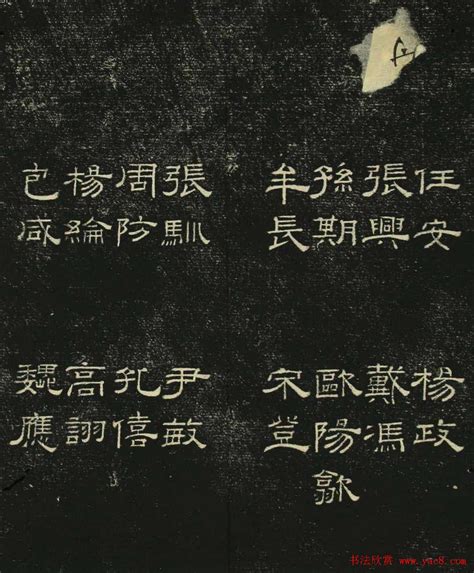 任安 楊政
張興 戴馮
孫期 歐陽歙
牟長 宋登
張馴 尹敏
周防 孔僖
楊綸 高詡
包咸 魏應
书法欣赏 www.yac8.com